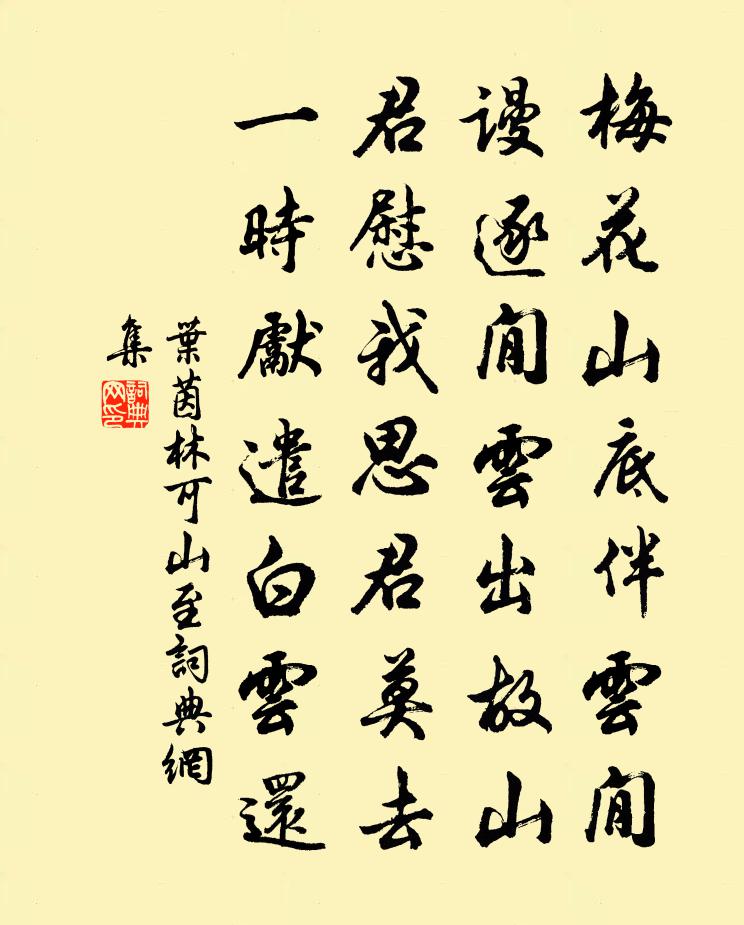 梅花山底伴雲閒
謾逐閒雲出故山
君慰我思君莫去
一時獻遣白雲還
葉茵林可山至詞典網
集
詞典网印